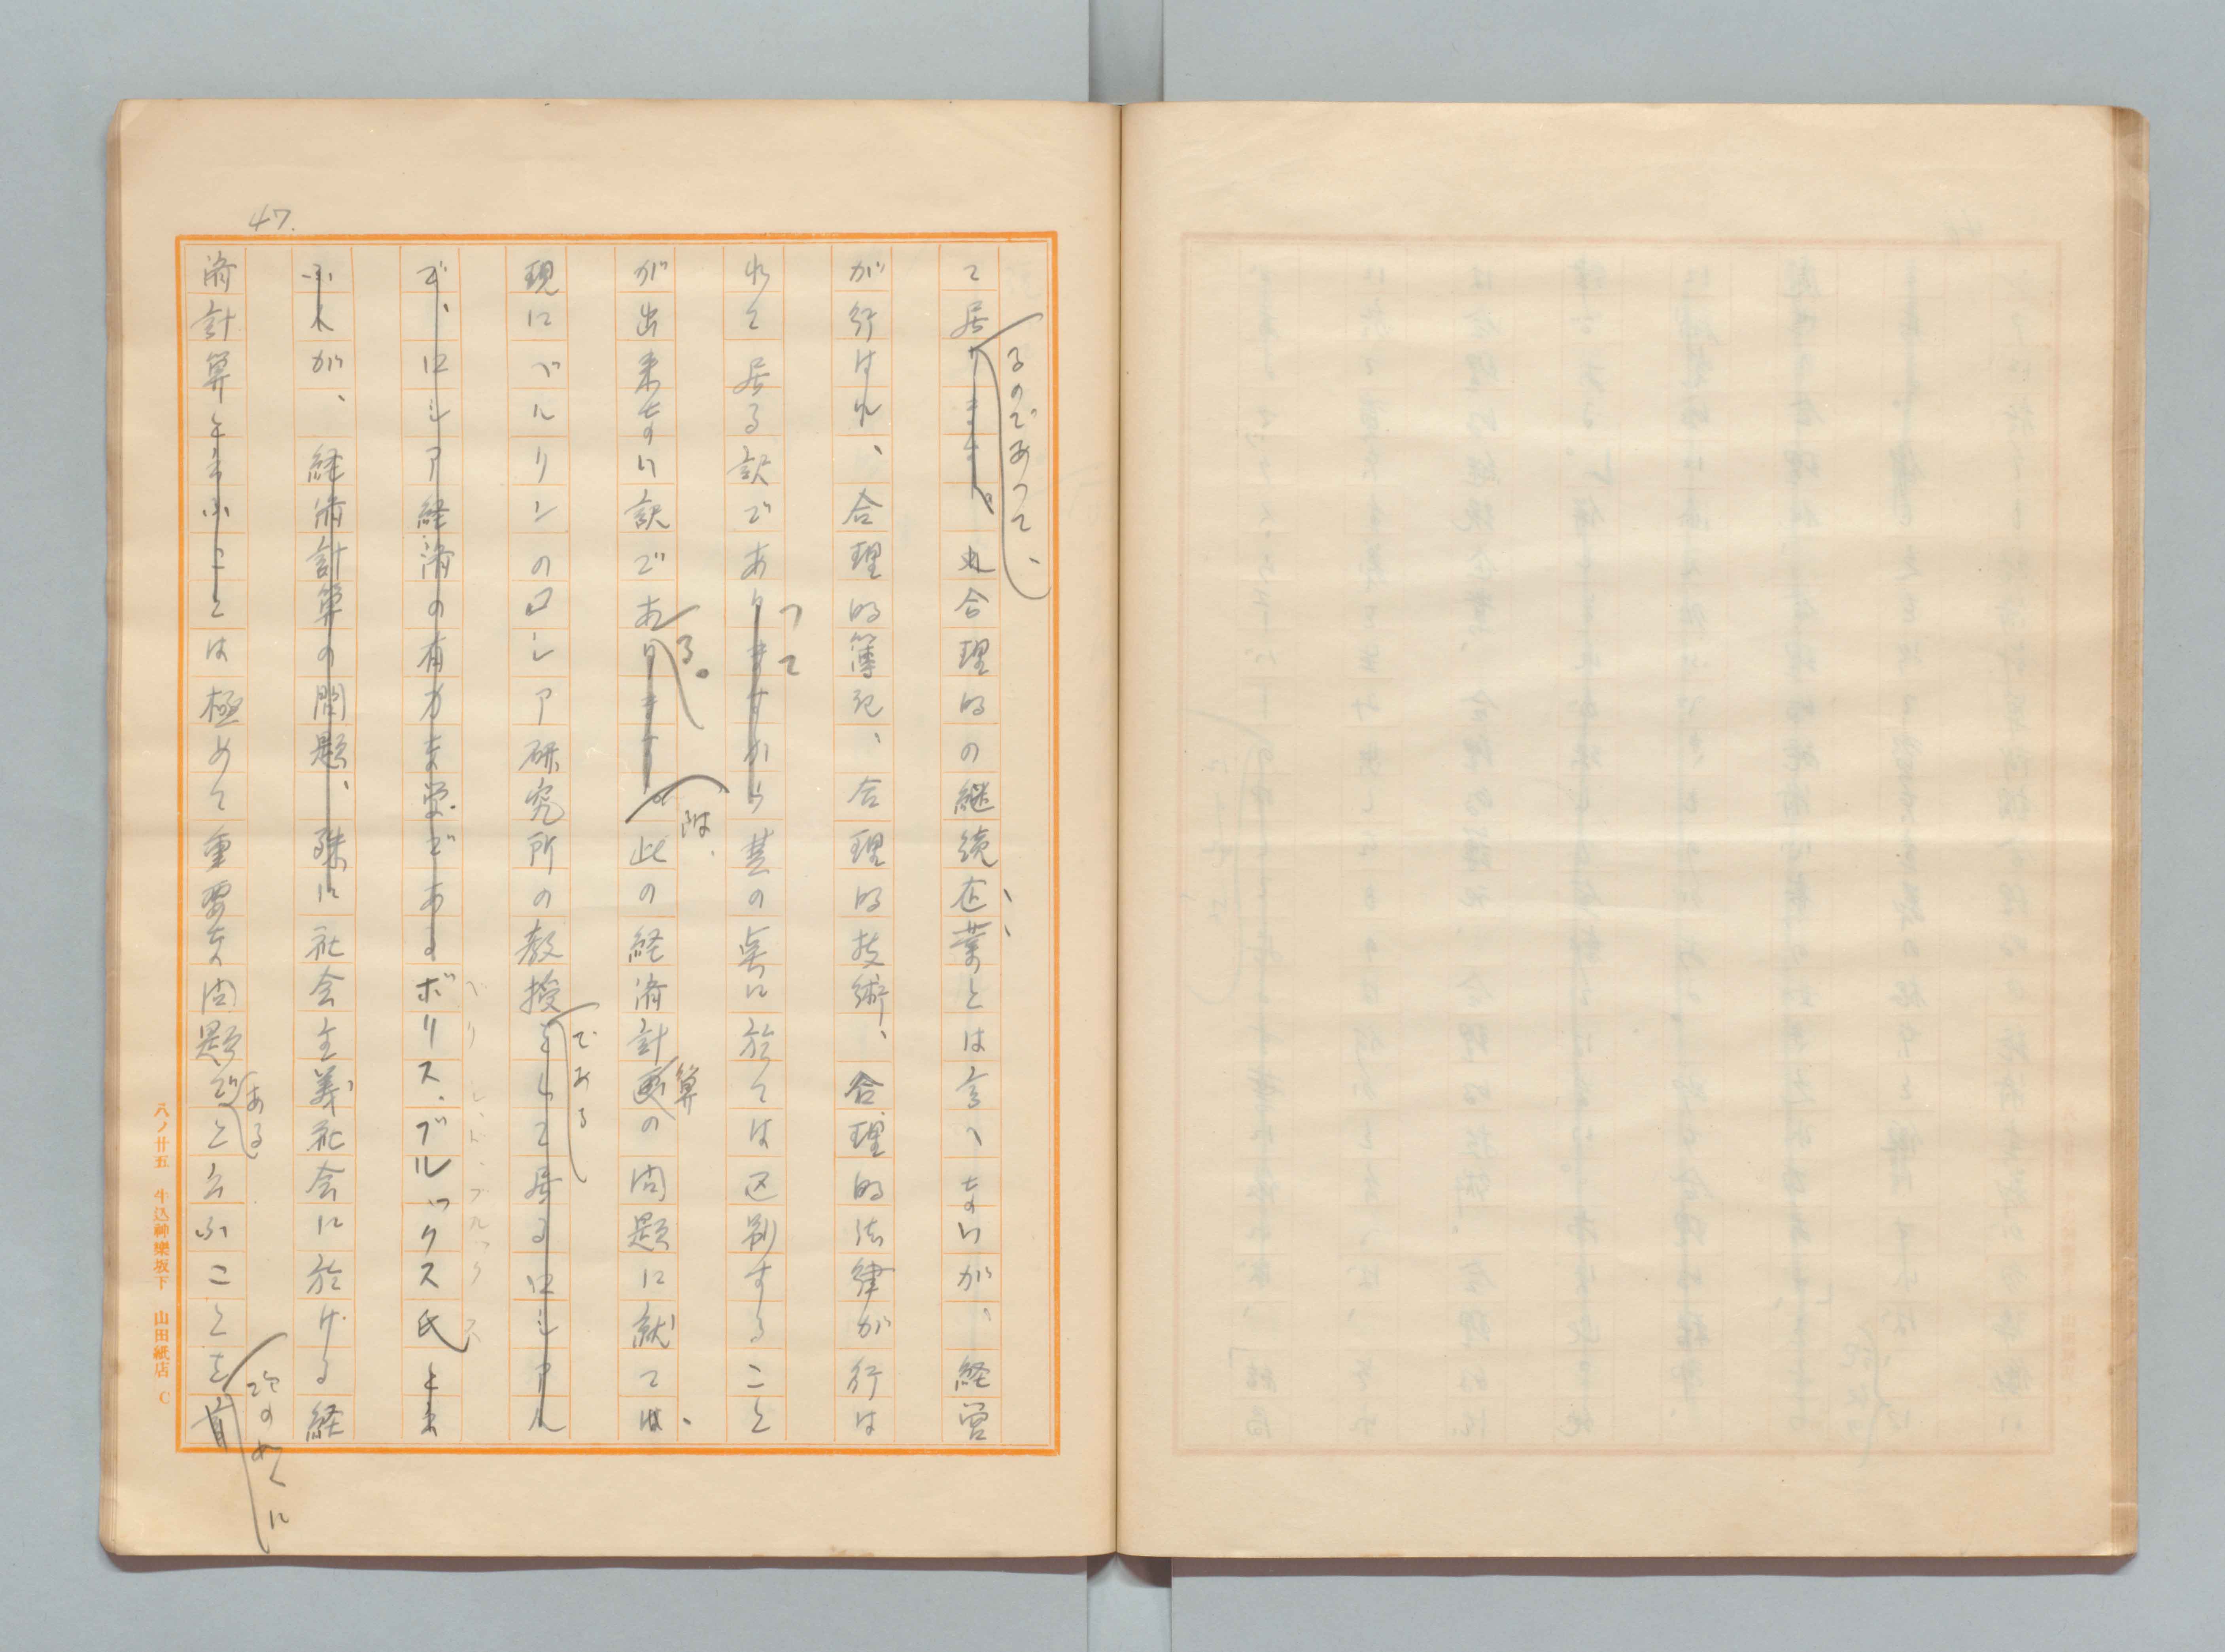 47.
て居ります。丸合理的の継続企業とは言へないが、経営
るのであつて、
が行はれ、合理的簿記、合理的技術、合理的法律が行は
れて居る訳でありますから其の点に於ては区別すること
つて
が出来ない訳であります。此の経済計画の問題に就ては、
る。
附
算
現にベルリンのロシア研究所の教授をして居るロシア人
である
で、ロシア経済の有力な学者であるボリス、ブルックス氏と云
ふ人が、経済計算の問題、殊に社会主義社会に於ける経
済計算と云ふことは極めて重要な問題だと云ふことを
ある
八ノ廿五 牛込神樂坂下 山田紙店 C